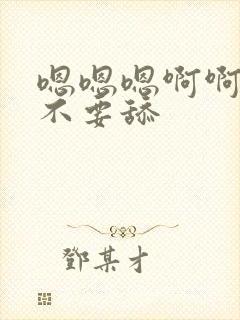 嗯嗯嗯啊啊
不要舔
鄧某才